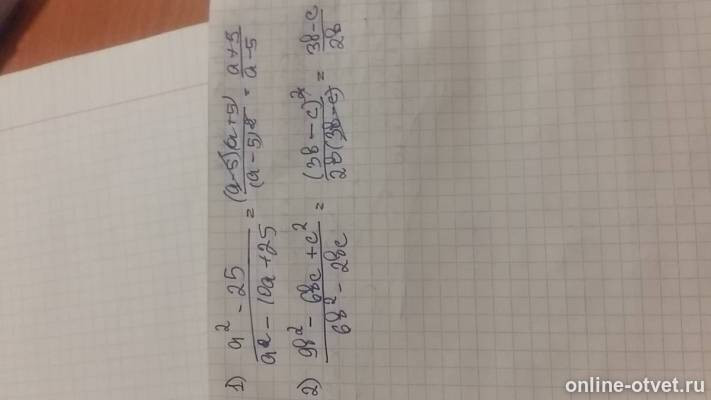 1) (a² - 25)/(a² - 10a + 25) = ((a-5)(a+5))/((a-5)²) = (a+5)/(a-5)
2) (9b² - 6bc + c²)/(6b² - 2bc) = ((3b - c)²)/(2b(3b-c)) = (3b-c)/(2b)
online-otvet.ru